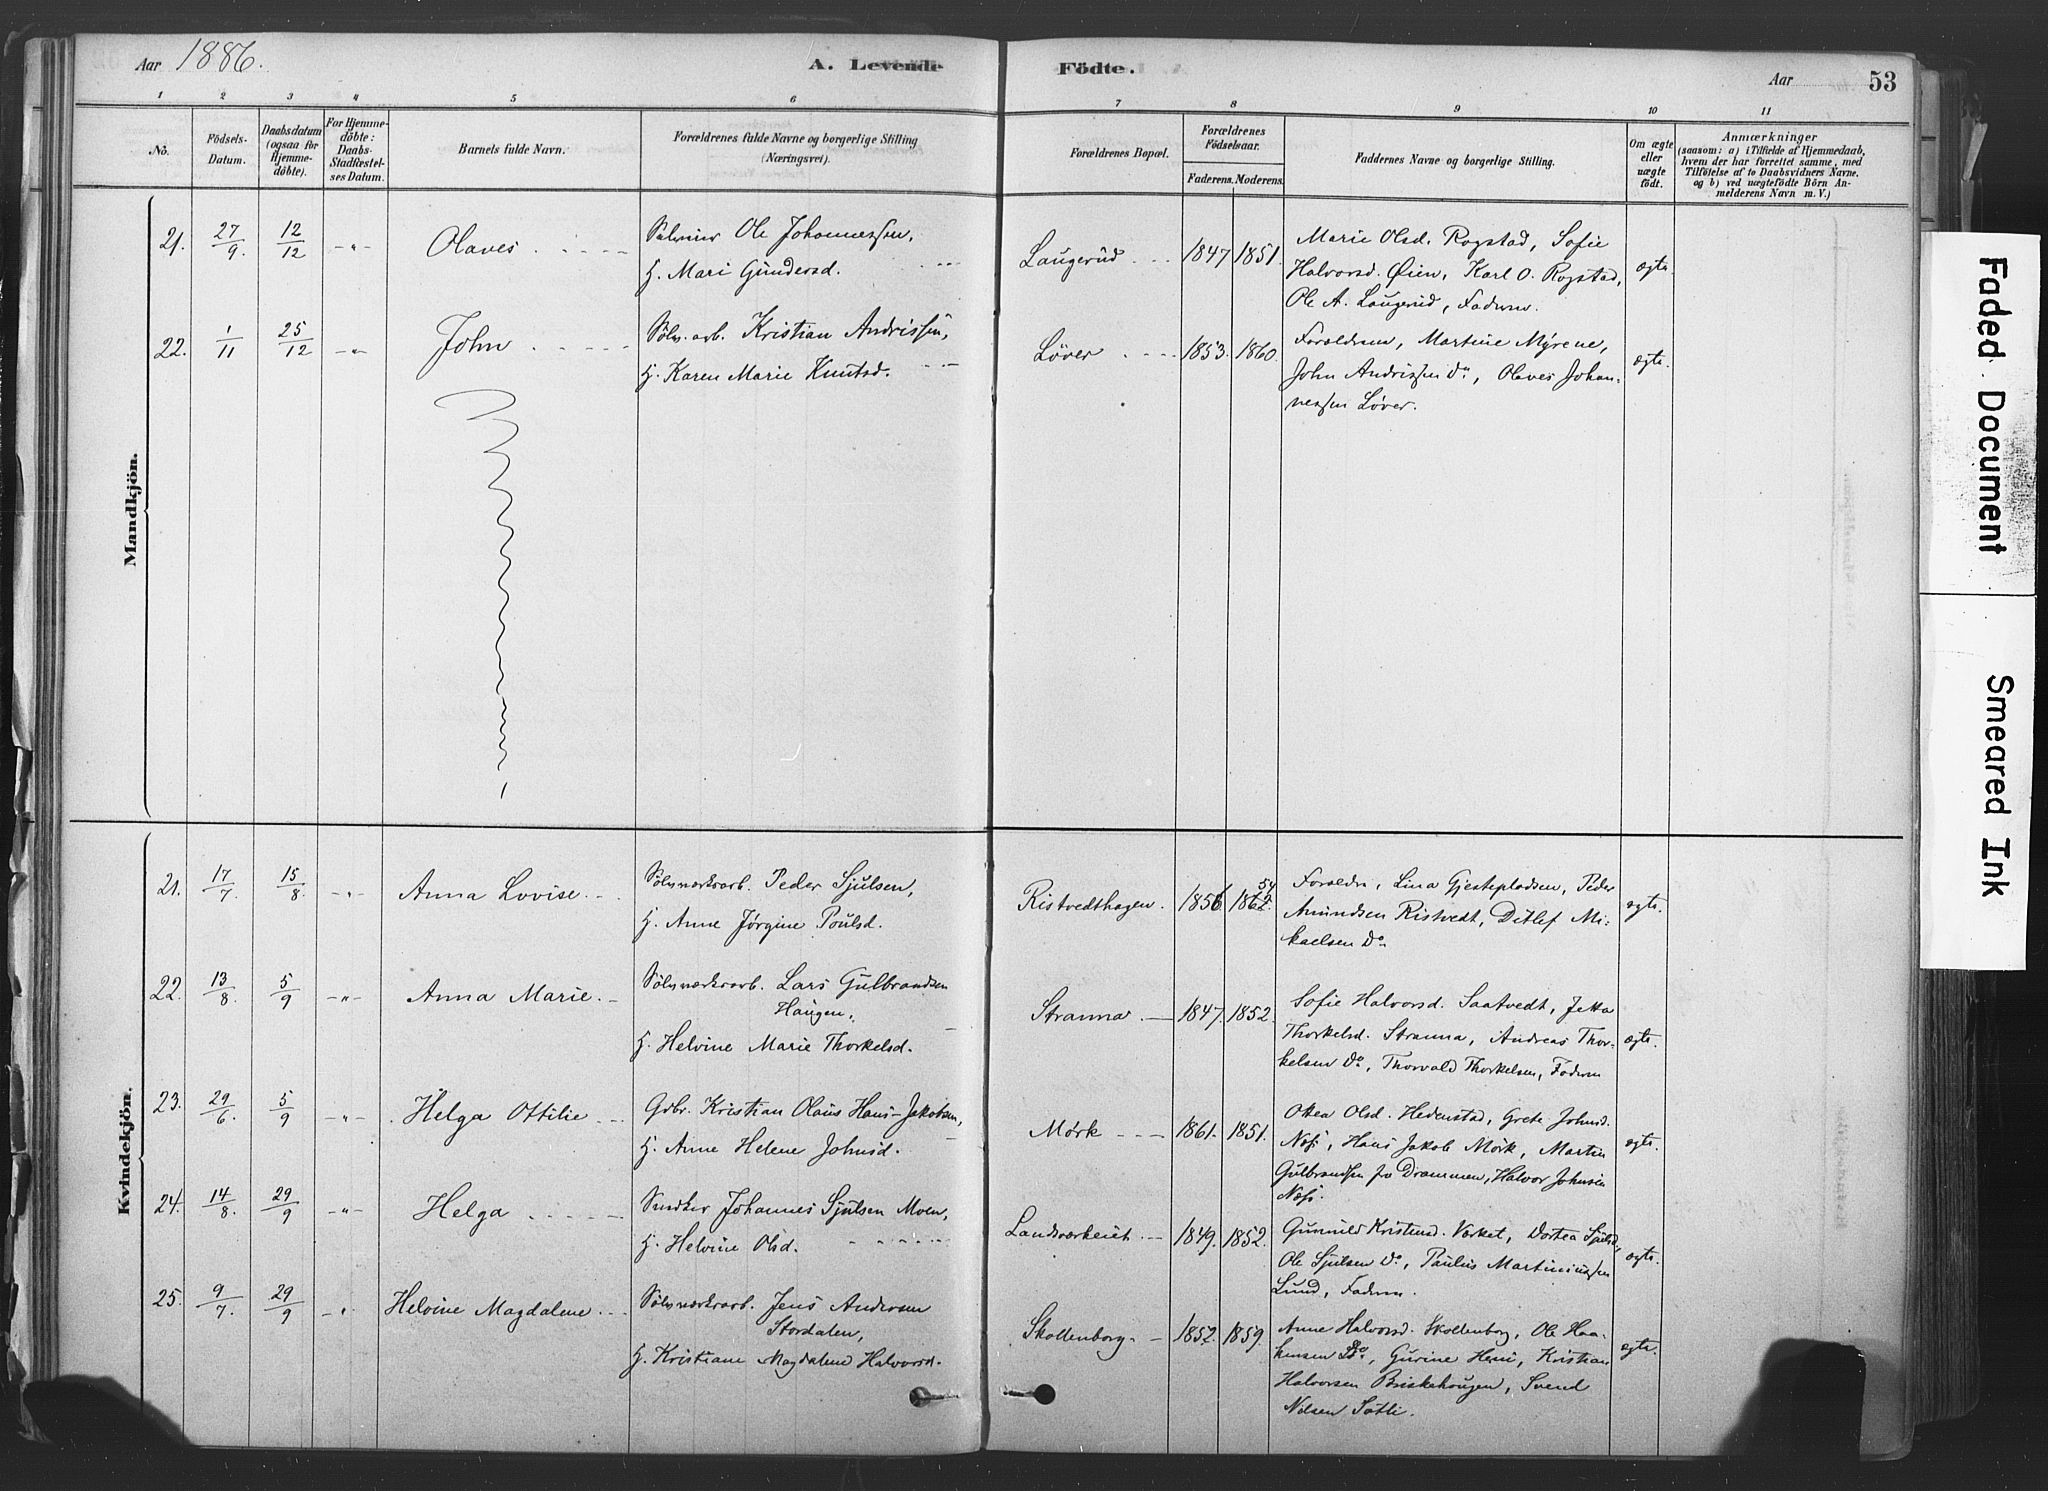 Aar 1886.
A. Levende Födte.
Aar 53
1 2 3 4 5 6 7 8 9 10 11
No.
Födsels-Datum.
Daabsdatum (ogsaa for Hjemmedöbte).
For Hjemmedöbte: Daabs-Stadfæstelses Datum.
Barnets fulde Navn.
Forældrenes fulde Navne og borgerlige Stilling (Næringsvei).
Forældrenes Bopæl.
Forældrenes Födselsaar.
Faderens. Moderens.
Faddernes Navne og borgerlige Stilling.
Om ægte eller uægte födt.
Anmærkninger
(saasom: a) i Tilfælde af Hjemmedaab,
hvem der har forrettet samme, med
Tilföielse af to Daabsvidners Navne,
og b) ved uægtefödte Börn An-
melderens Navn m. V.)
Mandkjön.
21. 27/9 12/12 -"- Olaves
Ole Johannessen,
H. Mari Gundersd.
Laugerud 1847 1851.
Marie Olsd. Rogstad, Sofie
Halvorsd. Øien, Karl O. Rogstad,
Ole A. Laugerud, Faderen.
ægte
22. 1/11 25/12 -"- John
Sølv. arb. Kristian Andrissen,
H. Karen Marie Knutsd.
Løver 1853. 1860.
Forældrene, Martine Myrene,
John Andrissen Do, Olaves Johan-
nessen Løver.
ægte.
Kvindekjön.
21. 17/7 15/8 -"- Anna Lovise
Sølvværksarb. Peder Sjulsen,
H. Anne Jørgine Poulsd.
Ristvedthagen. 1856 1862. 54
Forældre, Lina Gjestepladsen, Peder
Amundsen Ristvedt, Ditlef Mi-
kaelsen Do
ægte.
22. 13/8 5/9 -"- Anna Marie
Sølvværksarb. Lars Gulbrandsen
Haugen,
H. Helvine Marie Thorkelsd.
Stranna 1847. 1852.
Sofie Halvorsd. Saatvedt, Jetta
Thorkelsd. Stranna, Andreas Thor-
kelsen Do, Thorvald Thorkelsen, Faderen
ægte.
23. 29/6 5/9 -"- Helga Ottilie
Gdbr. Kristian Olaus Hans-Jakobsen,
H. Anne Helene Johnsd.
Mørk 1861. 1851.
Olea Olsd. Hedenstad, Grete Johnsd.
Næss, Hans Jakob Mørk, Martin
Gulbrandsen fra Drammen, Halvor Johnsen
Næss.
ægte.
24. 14/8 29/9 -"- Helga
Snedker Johannes Sjulsen Moen,
H. Helvine Olsd.
Landsværkeiet 1849. 1852.
Gunnild Kristensd. Verket, Dortea Sjulsd,
Ole Sjulsen Do, Paulus Martiniussen
Lund, Faderen.
ægte.
25. 9/7 29/9 -"- Helvine Magdalene
Sølvværksarb. Jens Andersen
Stordalen,
H. Kristiane Magdalene Halvorsd.
Skollenborg 1852. 1859.
Anne Halvorsd. Skollenborg, Ole Haa-
kensen Do, Gurine Hem, Kristian
Halvorsen Briskehougen, Svend
Nilsen Sätli.
ægte.
Faded Document
Smeared Ink